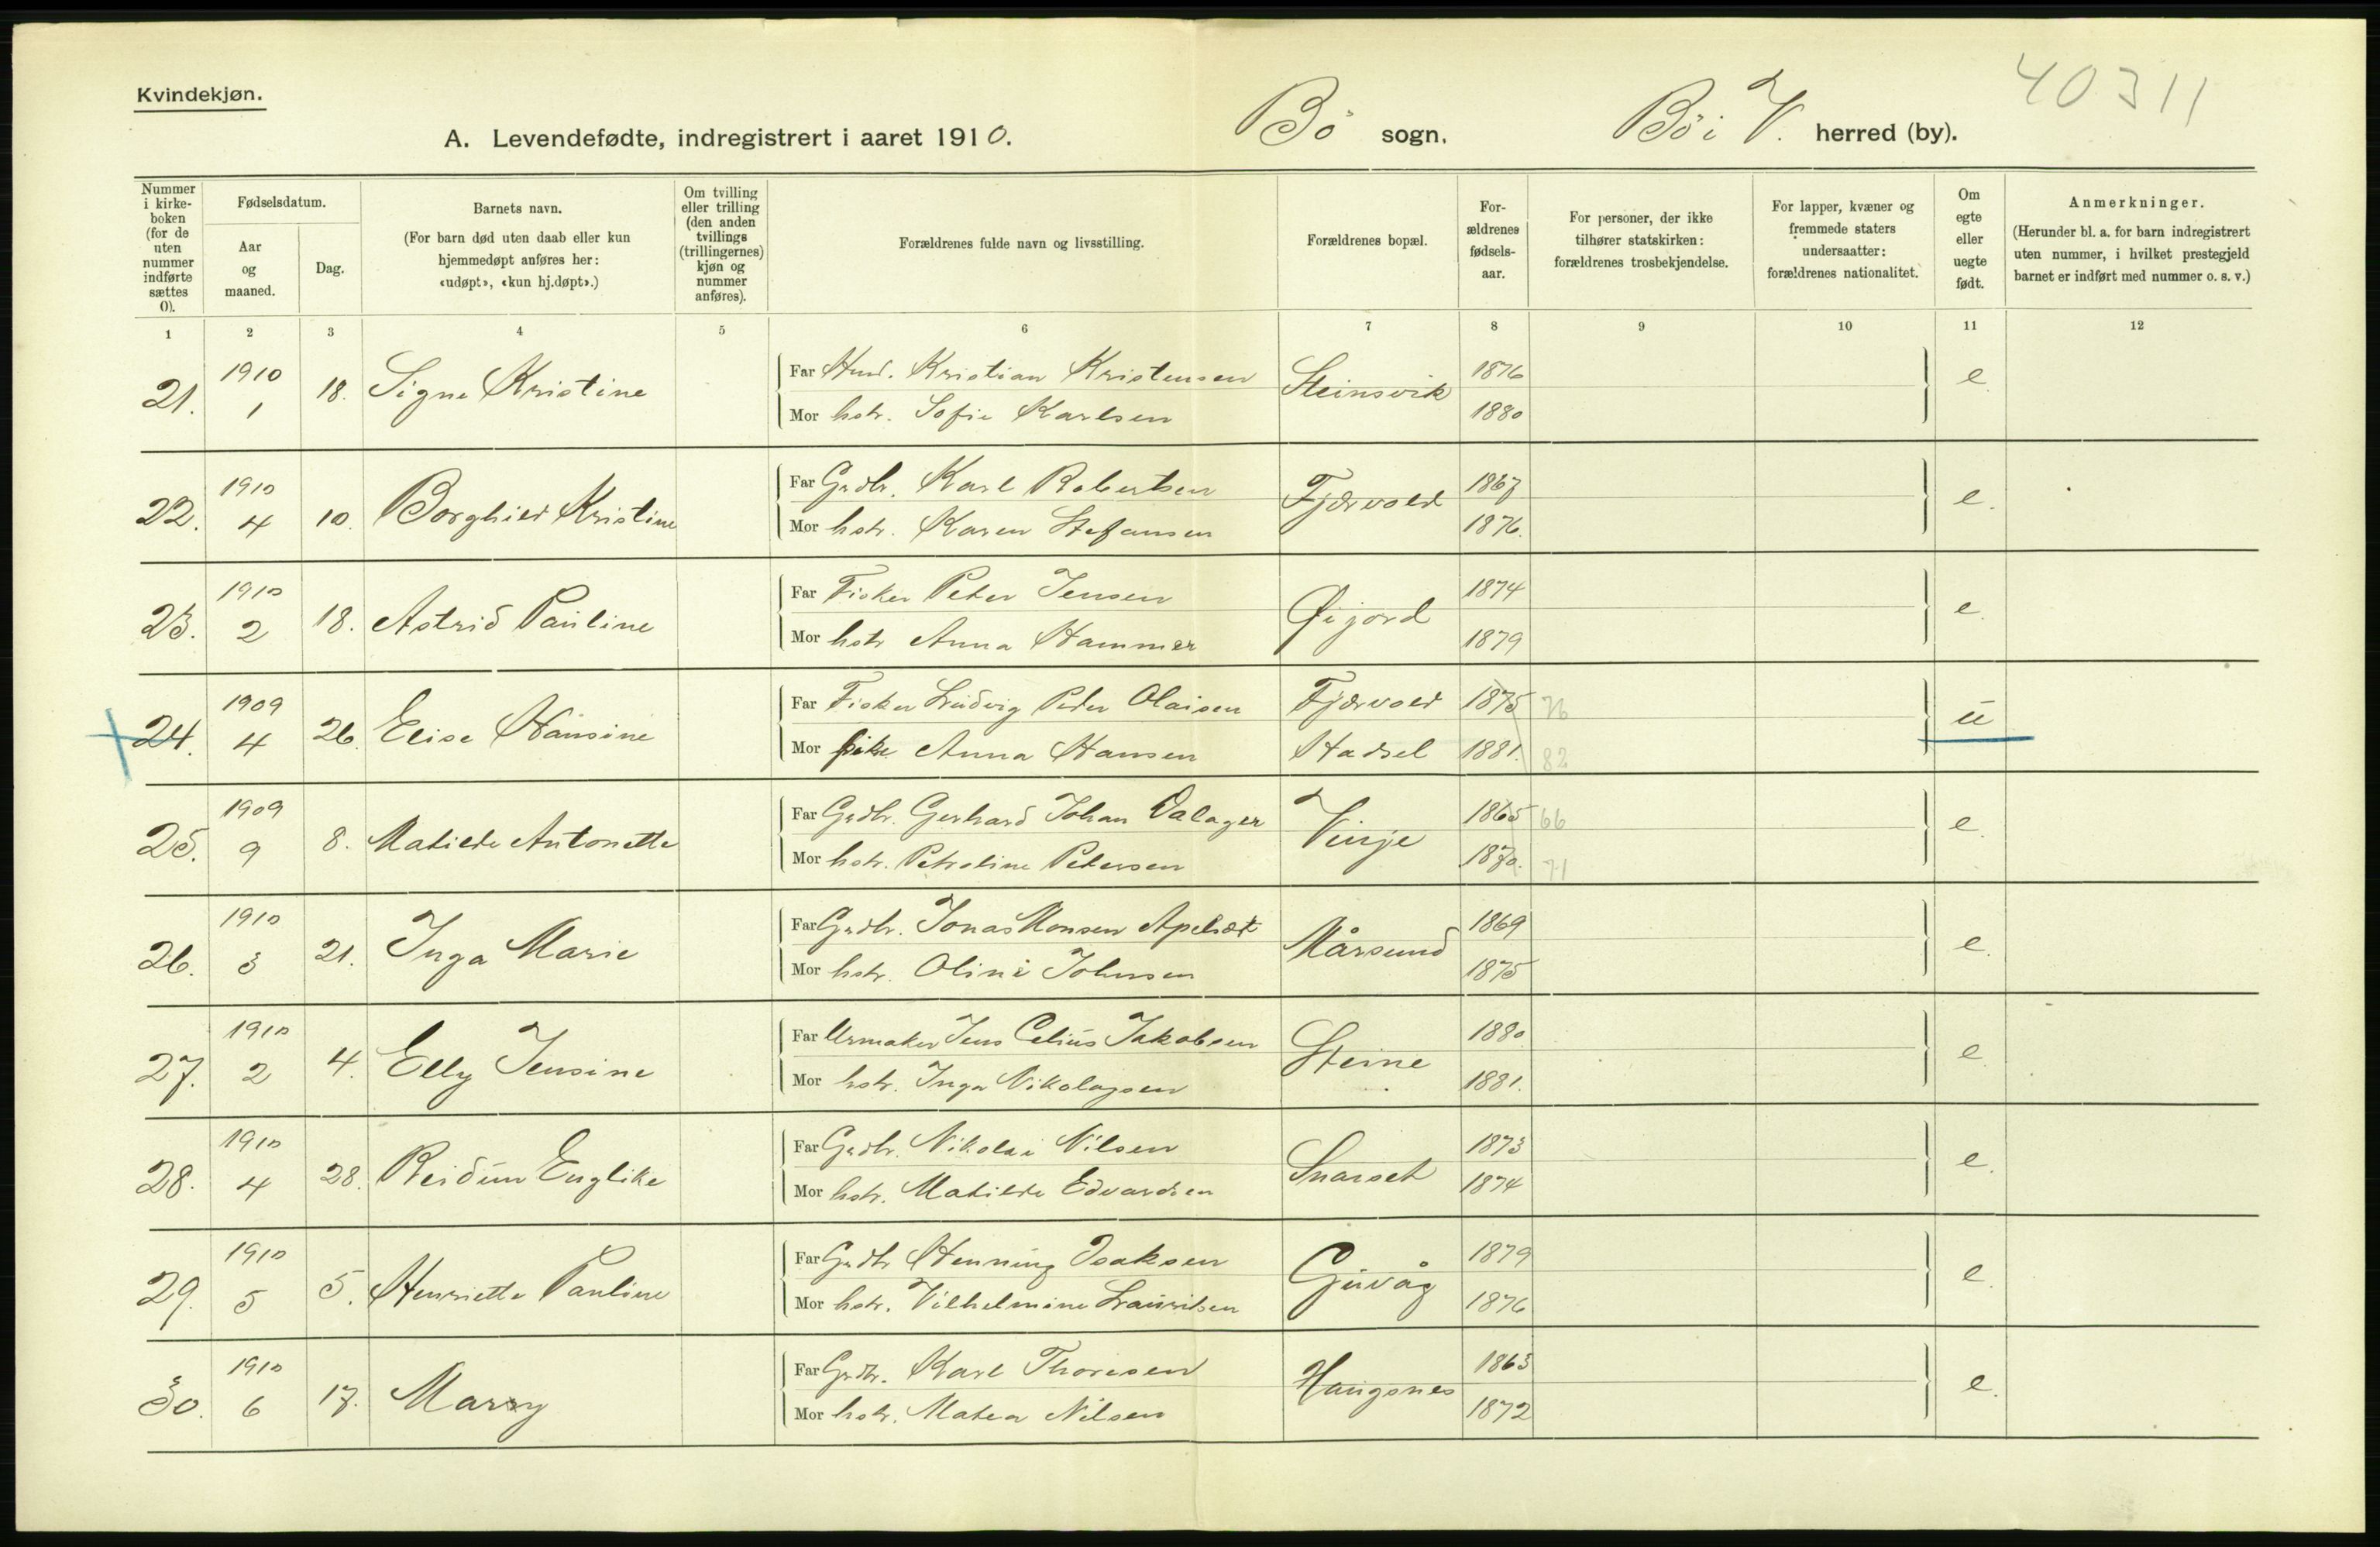 40311
Kvindekjøn.
A. Levendefødte, indregistrert i aaret 1910. Bö sogn. Bö i V. herred (by).
Nummer i kirke-boken (for de uten nummer indførte sættes 0).
Fødselsdatum.
Aar og maaned.
Dag.
Barnets navn.
(For barn død uten daab eller kun hjemmedøpt anføres her: «udøpt», «kun hj.døpt».)
Om tvilling eller trilling (den anden tvillings (trillingernes) kjøn og nummer anføres).
Forældrenes fulde navn og livsstilling.
Forældrenes bopæl.
For-ældrenes fødsels-aar.
For personer, der ikke tilhører statskirken: forældrenes trosbekjendelse.
For lapper, kvæner og fremmede staters undersaatter: forældrenes nationalitet.
Om egte eller uegte født.
Anmerkninger.
(Herunder bl. a. for barn indregistrert uten nummer, i hvilket prestegjeld barnet er indført med nummer o. s. v.)
1 2 3 4 5 6 7 8 9 10 11 12
21. 1910 1 18. Signe Kristine
Far Kristian Kristensen Steinsvik 1876 e.
Mor hstr. Sofie Karlsen 1880
22. 1910 4 10. Borghild Kristine
Far Grdbr. Karl Robertsen Fjærvold 1867 e.
Mor hstr. Karen Stefansen 1876.
23. 1910 2 18. Astrid Pauline
Far Fisker Peter Jensen Øijord 1874 e.
Mor hstr Anna Hammer 1879
24. 1909 4 26. Elise Hansine
Far Fisker Ludvig Peder Olaisen Fjærvold 1875 76 u
Mor pike Anna Hansen Hadsel 1881. 82
25. 1909 9 8. Matilde Antonette
Far Grdbr. Gerhard Johan Valager Vinje 1865 66 e.
Mor hstr. Petroline Petersen 1870. 71
26. 1910 3 21. Inga Marie
Far Grdbr. Jonas Monsen Mårsund 1869 e.
Mor hstr. Oline Johnsen 1875
27. 1910 2 4. Elly Jensine
Far Urmaker Jens Celius Jakobsen Steine 1880 e
Mor hstr. Inga Nikolaysen 1881.
28. 1910 4 28. Reidun Englike
Far Grdbr. Nikolai Nilsen Snarset 1873 e.
Mor hstr. Matilde Edvardsen 1874
29. 1910 5 5. Henriette Pauline
Far Grdbr Henning Isaksen Guvåg 1879 e.
Mor hstr. Vilhelmine Lauritsen 1876
30. 1910 6 17. Marry
Far Grdbr. Karl Thoresen Haugsnes 1863 e.
Mor hstr. Matea Nilsen 1872